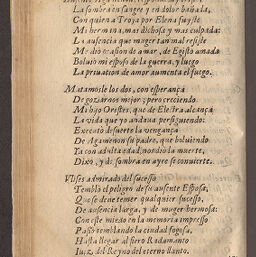 La sombra en sangre y en dolor bañada,
Con quien a Troya por Elena fuyste
Mi hermana, mas dichosa y mas culpada:
La ausencia que muger tan mal resiste
Me dio ocasion de amar, de Egisto amada
Boluio mi esposo de la guerra, y luego
La priuacion de amor aumenta el fuego.
Matamosle los dos, con esperança
De gozarnos mejor; pero creciendo
Mi hijo Orestes, que de Eletra alcança
La vida que yo andaua persiguiendo:
Executò de suerte la vengança
De Agamenon su padre, que boluiendo
Ya con adulta edad me dio la muerte,
Dixo, y de sombra en ayre se conuierte.
Vlises admirado del sucesso
Temblò el peligro de su ausente Esposa,
Que se deue temer qualquier sucesso,
De ausencia larga, y de muger hermosa:
Con este miedo en la memoria impresso
Passò temblando la ciudad fogosa,
Hasta llegar al fiero Radamanto
Iuez, del Reyno del eterno llanto.